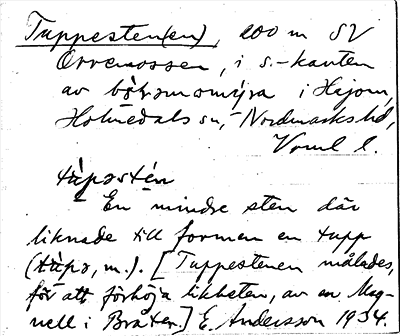 Tuppesten(en), 200 m SV
Orremossen, i s.-kanten
av
Holmedals sn, Nordmarks hd,
Vrml l.
tùpəstén
En mindre sten där
liknade till formen en tupp
(tùpə, m.). [Tuppestenen målades,
för att förhöja likheten, av en Mag-
nell i Bråten.] E. Andersson 1934.